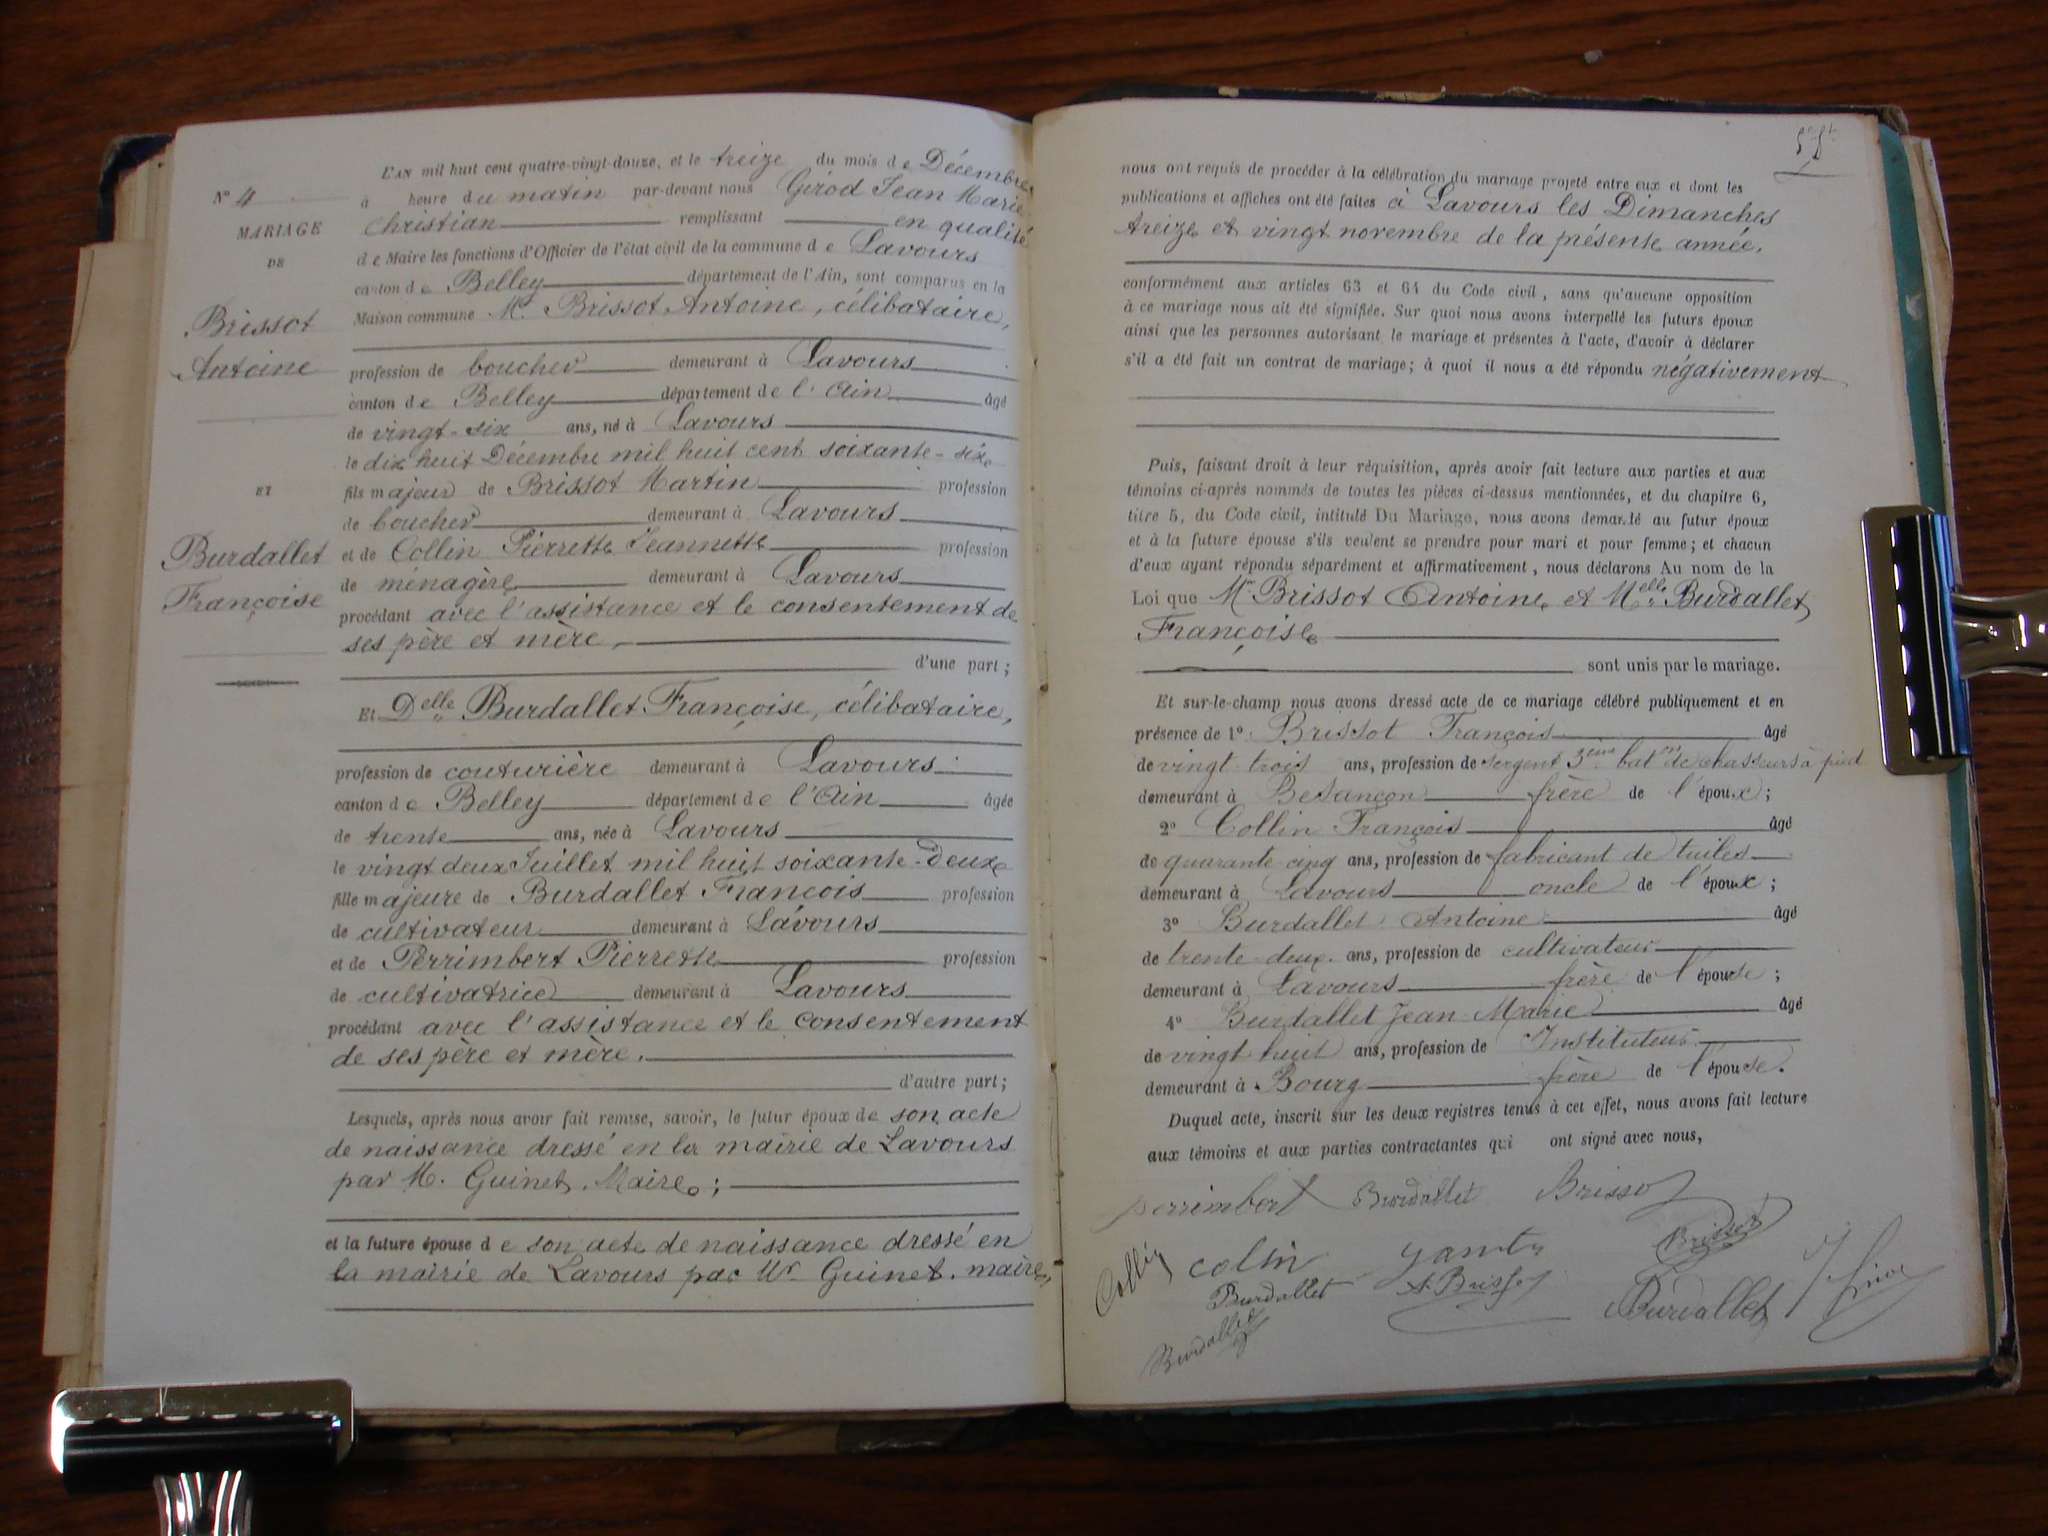 L'AN mil huit cent quatre-vingt-douze, et le treize du mois de Décembre
N° 4
à heure du matin par-devant nous Gérod Jean Marie
Christian remplissant en qualité
MARIAGE
DE
de Maire les fonctions d'Officier de l'état civil de la commune de Lavours
canton de Belley département de l'Ain, sont comparus en la
Maison commune Mr. Brissot Antoine, célibataire,
Brissot
Antoine
profession de boucher demeurant à Lavours
canton de Belley département de l'Ain âgé
de vingt-six ans, né à Lavours
le dix huit Décembre mil huit cent soixante-six
ET
fils majeur de Brissot Martin profession
de boucher demeurant à Lavours
Burdallet
Françoise
et de Collin Pierrette Jeannette profession
de ménagère demeurant à Lavours
procédant avec l'assistance et le consentement de
ses père et mère,
d'une part;
Et Delle Burdallet Françoise, célibataire,
profession de couturière demeurant à Lavours
canton de Belley département de l'Ain âgée
de trente ans, née à Lavours
le vingt deux Juillet mil huit soixante-deux
fille majeure de Burdallet François profession
de cultivateur demeurant à Lavours
et de Perrimbert Pierrette profession
de cultivatrice demeurant à Lavours
procédant avec l'assistance et le consentement
de ses père et mère.
d'autre part;
Lesquels, après nous avoir fait remise, savoir, le futur époux de son acte
de naissance dressé en la mairie de Lavours
par M. Guinet, Maire;
et la future épouse de son acte de naissance dressé en
la mairie de Lavours par Mr Guinet. maire,
nous ont requis de procéder à la célébration du mariage projeté entre eux et dont les
publications et affiches ont été faites à Lavours les Dimanches
treize et vingt novembre de la présente année.
conformément aux articles 63 et 64 du Code civil, sans qu'aucune opposition
à ce mariage nous ait été signifiée. Sur quoi nous avons interpellé les futurs époux
ainsi que les personnes autorisant le mariage et présentes à l'acte, d'avoir à déclarer
s'il a été fait un contrat de mariage; à quoi il nous a été répondu négativement
Puis, faisant droit à leur réquisition, après avoir fait lecture aux parties et aux
témoins ci-après nommés de toutes les pièces ci-dessus mentionnées, et du chapitre 6,
titre 5, du Code civil, intitulé Du Mariage, nous avons demandé au futur époux
et à la future épouse s'ils veulent se prendre pour mari et pour femme; et chacun
d'eux ayant répondu séparément et affirmativement, nous déclarons Au nom de la
Loi que Mr Brissot Antoine et Melle Burdallet
Françoise
sont unis par le mariage.
Et sur-le-champ nous avons dressé acte de ce mariage célébré publiquement et en
présence de 1° Brissot François âgé
de vingt trois ans, profession de sergent 3ème baton de chasseurs à pied
demeurant à Besançon frère de l'époux;
2° Collin François âgé
de quarante cinq ans, profession de fabricant de tuiles
demeurant à Lavours oncle de l'époux;
3° Burdallet Antoine âgé
de trente-deux ans, profession de cultivateur
demeurant à Lavours frère de l'épouse;
4° Burdallet Jean Marie âgé
de vingt huit ans, profession de Instituteur
demeurant à Bourg frère de l'épouse.
Duquel acte, inscrit sur les deux registres tenus à cet effet, nous avons fait lecture
aux témoins et aux parties contractantes qui ont signé avec nous,
perrimbert Burdallet Brissot
Collin colin
Burdallet A. Brissot Burdallet
Burdallet